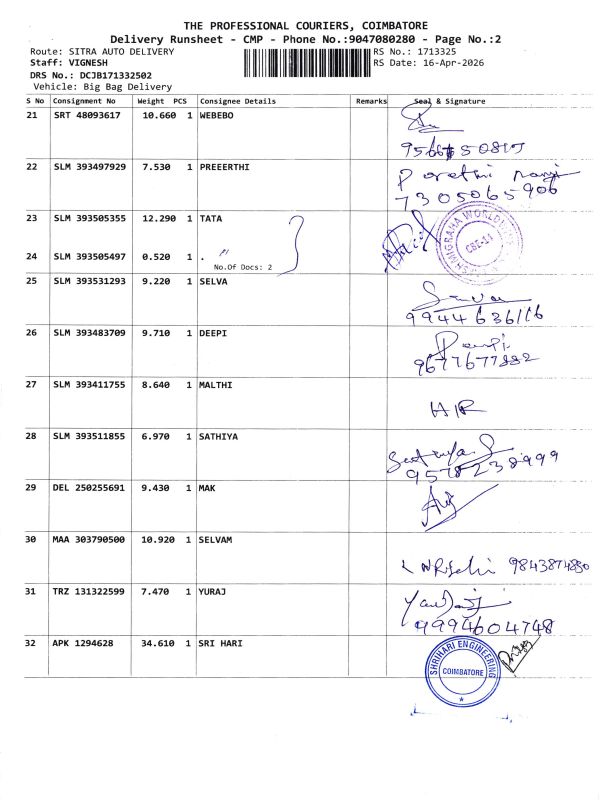 THE PROFESSIONAL COURIERS, COIMBATORE
Delivery Runsheet - CMP - Phone No.:9047080280 - Page No.:2
Route: SITRA AUTO DELIVERY RS No.: 1713325
Staff: VIGNESH RS Date: 16-Apr-2026
DRS No.: DCJB171332502
Vehicle: Big Bag Delivery
S No Consignment No Weight PCS Consignee Details Remarks Seal & Signature
21 SRT 48093617 10.660 1 WEBEBO
22 SLM 393497929 7.530 1 PREEERTHI
7305065906
23 SLM 393505355 12.290 1 TATA
24 SLM 393505497 0.520 1 .
No.Of Docs: 2
CBE-14
25 SLM 393531293 9.220 1 SELVA
9944636116
26 SLM 393483709 9.710 1 DEEPI
9677677882
27 SLM 393411755 8.640 1 MALTHI
28 SLM 393511855 6.970 1 SATHIYA
9578238999
29 DEL 250255691 9.430 1 MAK
30 MAA 303790500 10.920 1 SELVAM
9843874850
31 TRZ 131322599 7.470 1 YURAJ
9994604748
32 APK 1294628 34.610 1 SRI HARI
SHRIHARI ENGINEERING
COIMBATORE